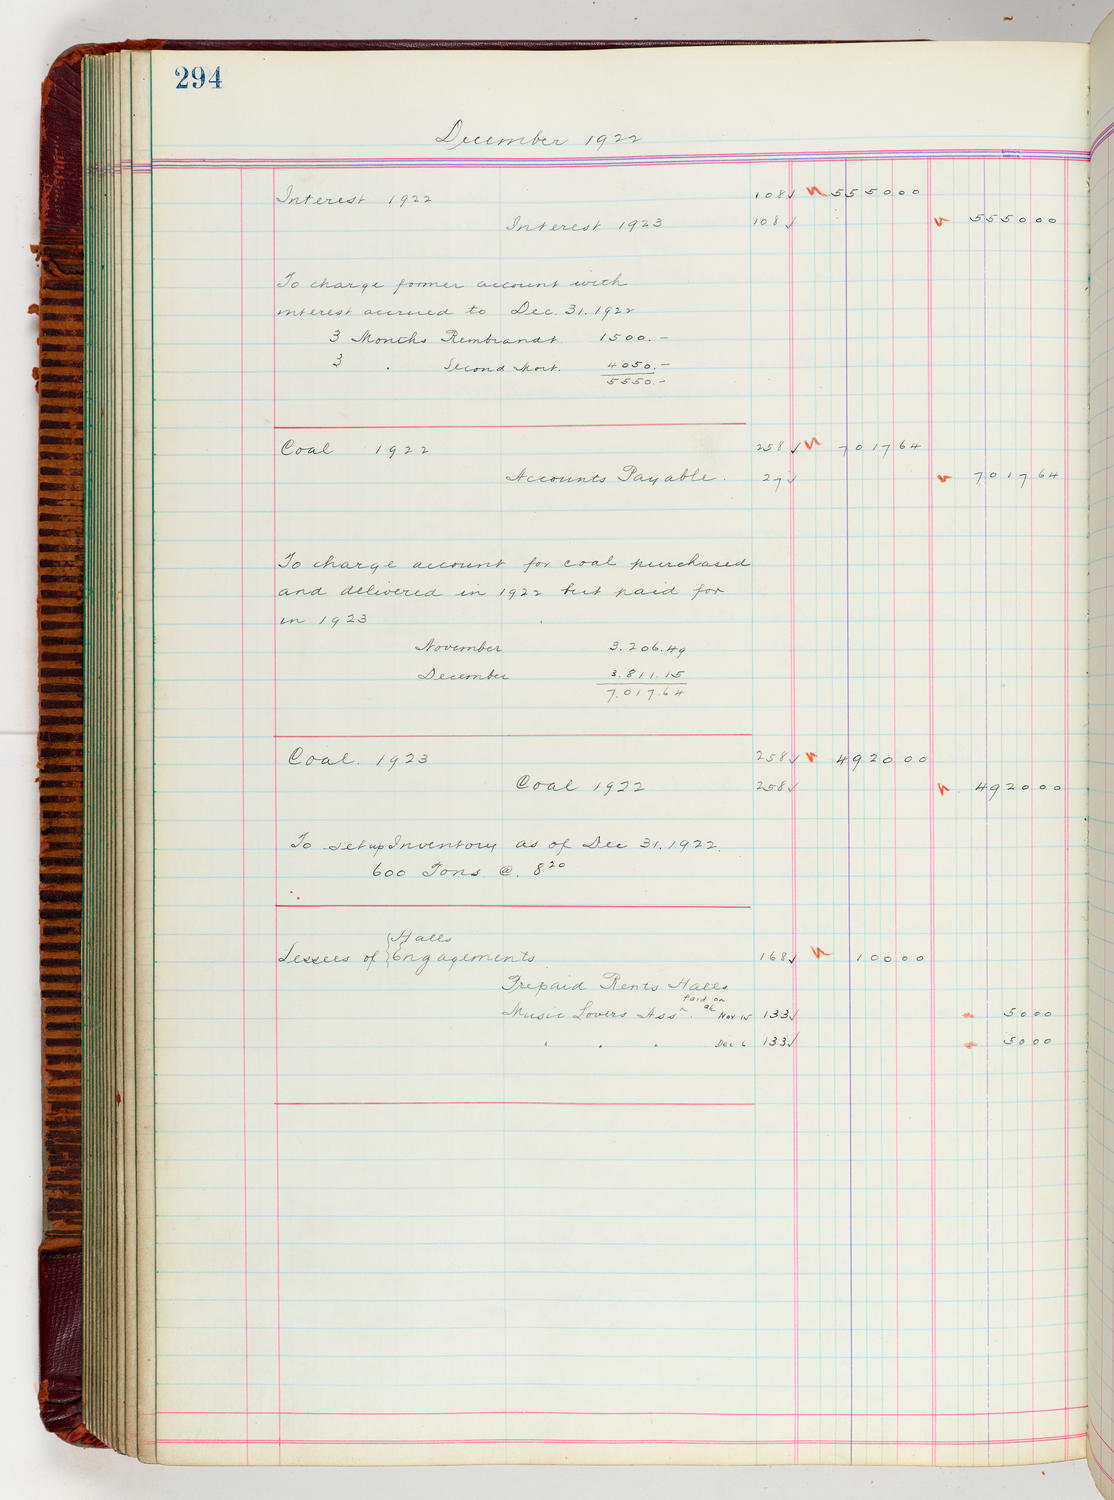 294
December 1922
Interest 1922 108✓ 555000
Interest 1923 108✓ 555000
To charge former account with
interest accrued to Dec. 31. 1922
3 Months Rembrandt 1500.-
3 " Second Mort. 4050.-
5550.-
Coal 1922 258✓ 701764
Accounts Payable. 27✓ 701764
To charge account for coal purchased
and delivered in 1922 but paid for
in 1923
November 3.206.49
December 3.811.15
7.017.64
Coal. 1923 258✓ 492000
Coal 1922 258✓ 492000
To set up Inventory as of Dec 31. 1922.
600 Tons @. 8 20
Halls
Lessees of Engagements 168✓ 10000
Prepaid Rents Halls
Paid on
Music Lovers Assn. a/c Nov 15 133✓ 5000
" " " Dec 6 133✓ 5000